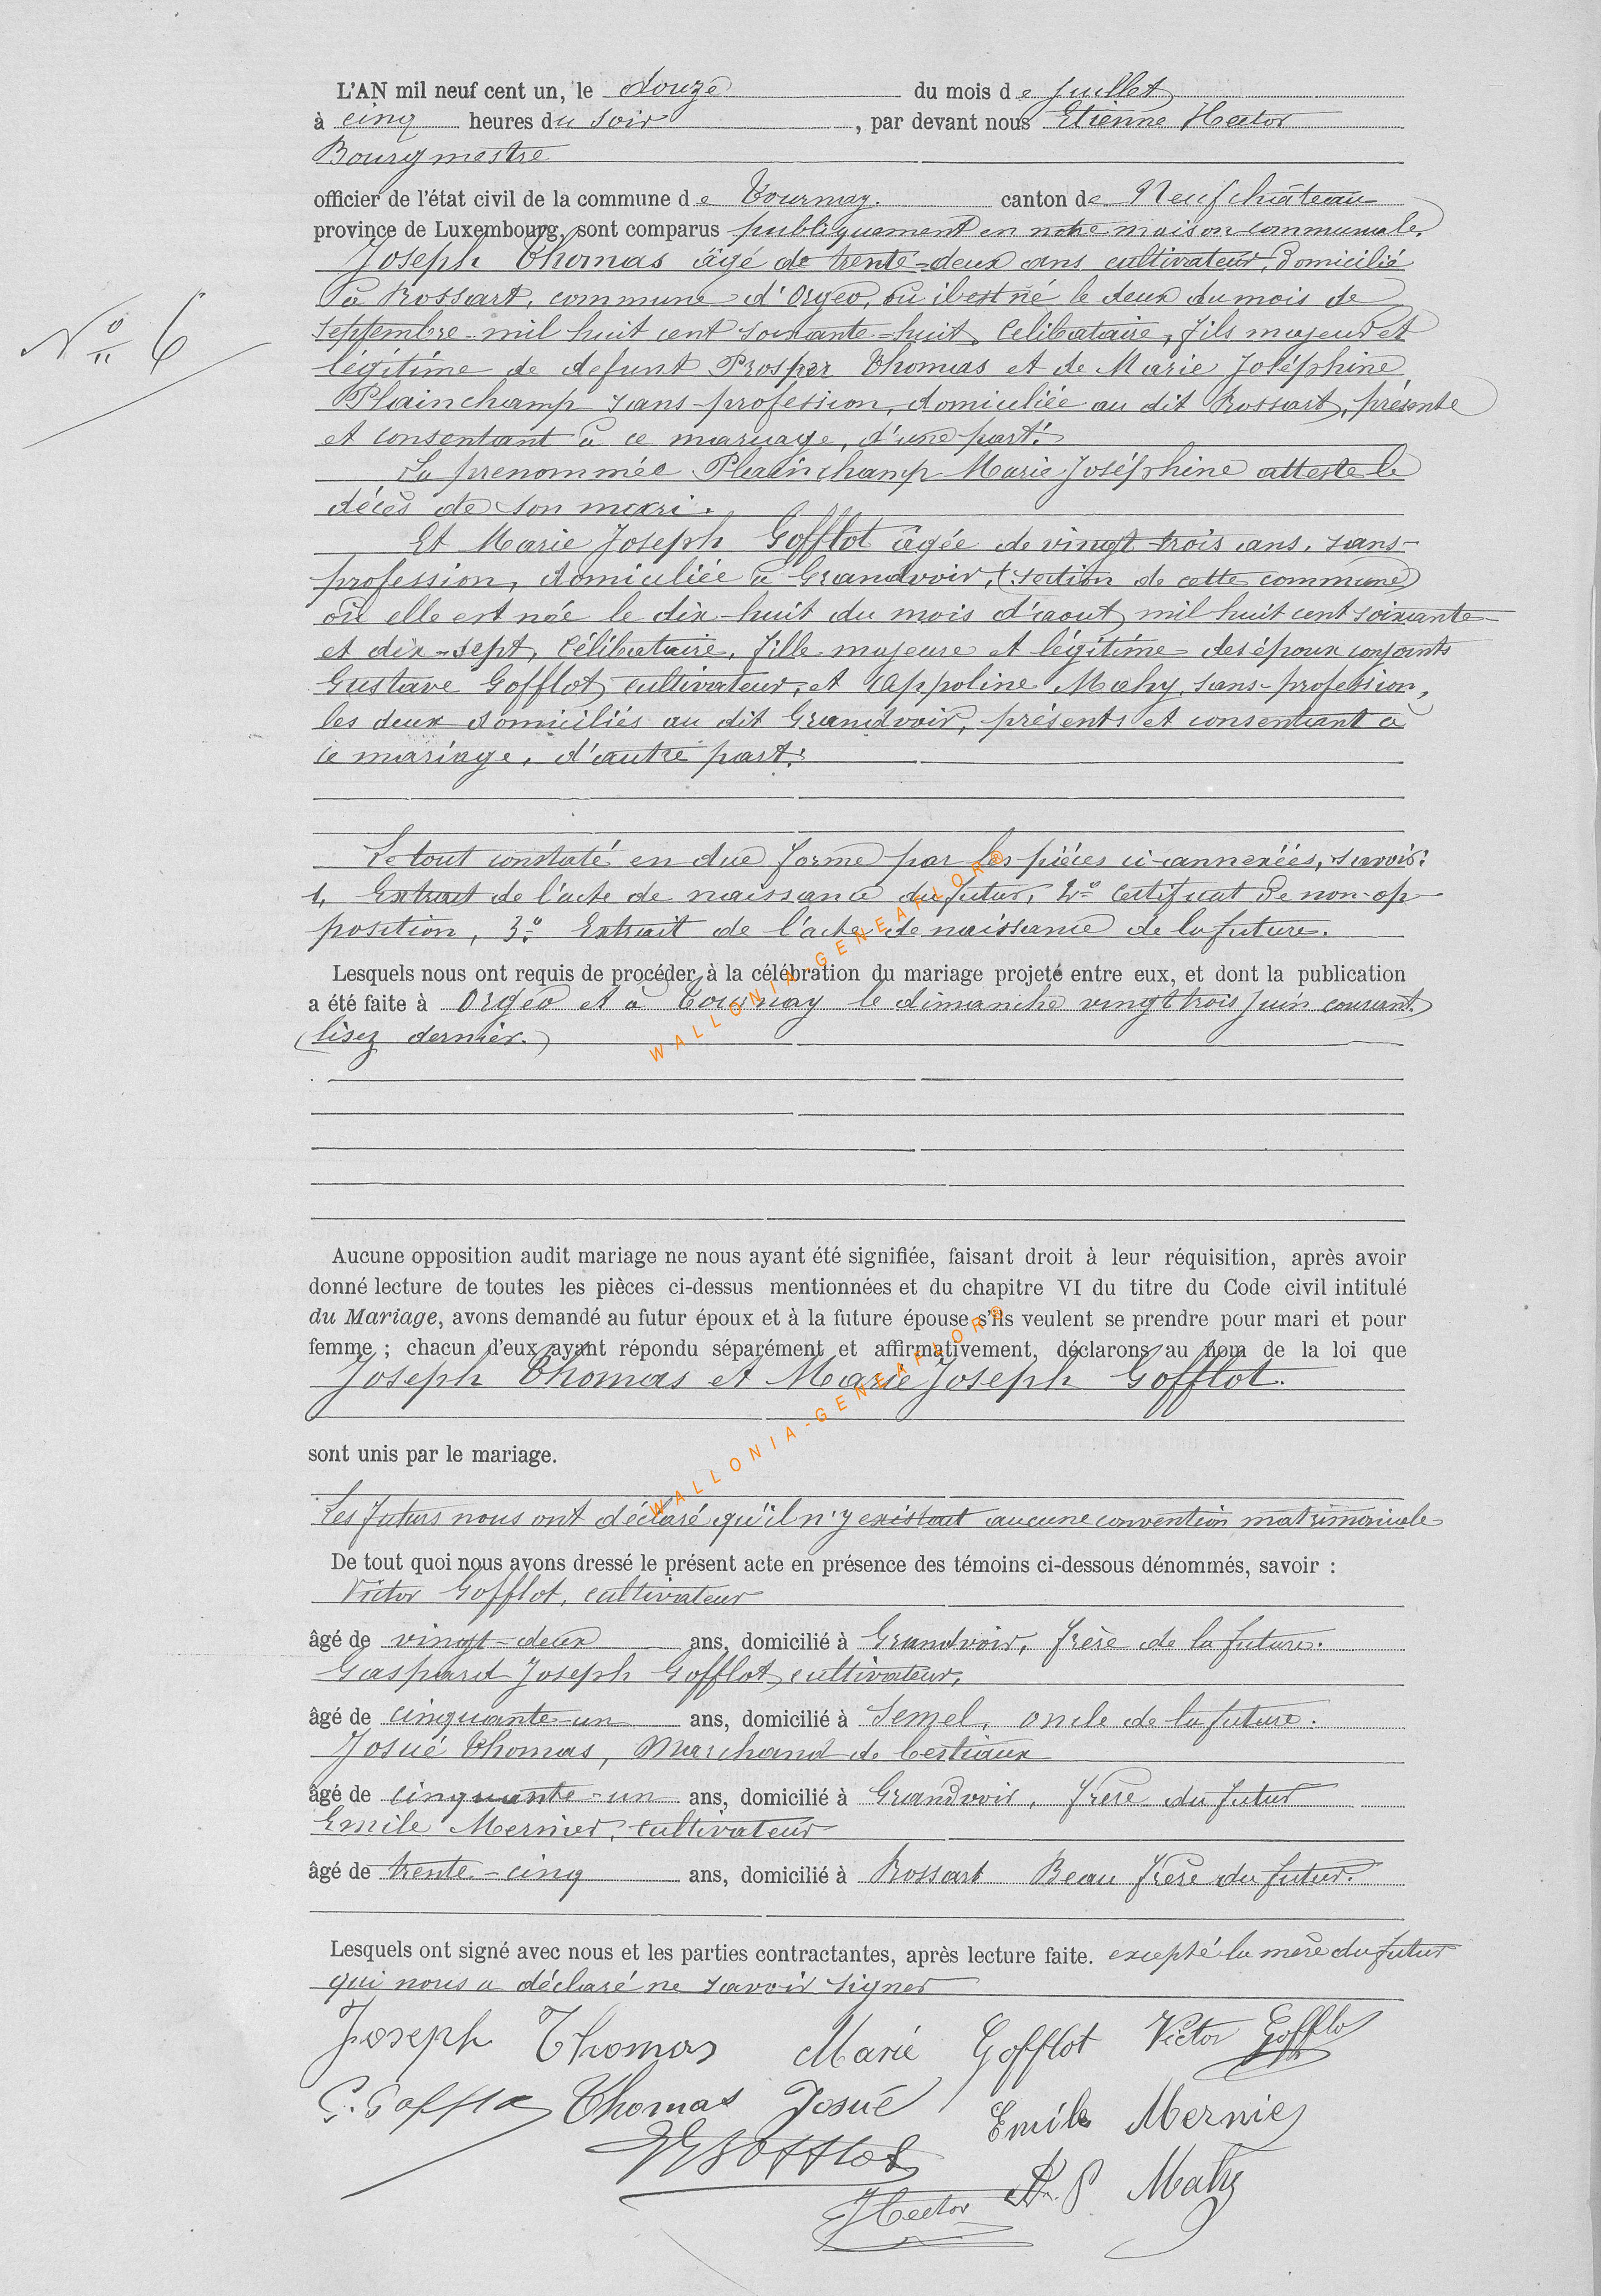 L'AN mil neuf cent un, le douze du mois de juillet
à cinq heures du soir, par devant nous Etienne Hector
Bourgmestre
officier de l'état civil de la commune de Tournay. canton de Neufchâteau
province de Luxembourg, sont comparus publiquement en notre maison communale.
Joseph Thomas âgé de trente-deux ans cultivateur, domicilié
à Rossart, commune d'Orgeo, où il est né le deux du mois de
septembre mil huit cent soixante-huit, Célibataire, fils majeur et
légitime de defunt Prosper Thomas et de Marie Joséphine
Plainchamp sans-profession, domiciliée au dit Rossart, présente
et consentant à ce mariage, d'une part.
La prenommée Plainchamp Marie Joséphine atteste le
décès de son mari.
Et Marie Joseph Gofflot âgée de vingt-trois ans, sans-
profession, domiciliée à Grandvoir, (section de cette commune)
où elle est née le dix-huit du mois d'aout mil huit cent soixante
et dix-sept, Célibataire, fille majeure et légitime des époux conjoints
Gustave Gofflot, cultivateur, et Appoline Mahy, sans-profession,
les deux domiciliés au dit Grandvoir, présents et consentant à
ce mariage, d'autre part:
N° 6
Le tout constaté en due forme par les pièces ci-annexées, savoir:
1, Extrait de l'acte de naissance du futur, 2° Certificat de non-op-
position, 3° Extrait de l'acte de naissance de la future.
Lesquels nous ont requis de procéder à la célébration du mariage projeté entre eux, et dont la publication
a été faite à Orgeo et à Tournay le dimanche vingt trois juin courant.
(lisez dernier.)
WALLONIA-GENEAFLOR®
Aucune opposition audit mariage ne nous ayant été signifiée, faisant droit à leur réquisition, après avoir
donné lecture de toutes les pièces ci-dessus mentionnées et du chapitre VI du titre du Code civil intitulé
du Mariage, avons demandé au futur époux et à la future épouse s'ils veulent se prendre pour mari et pour
femme ; chacun d'eux ayant répondu séparément et affirmativement, déclarons au nom de la loi que
Joseph Thomas et Marie Joseph Gofflot.
WALLONIA-GENEAFLOR®
sont unis par le mariage.
Les futurs nous ont déclaré qu'il n'y existait aucune convention matrimoniale
De tout quoi nous avons dressé le présent acte en présence des témoins ci-dessous dénommés, savoir :
Victor Gofflot, cultivateur
âgé de vingt-deux ans, domicilié à Grandvoir, frère de la future.
Gaspard Joseph Gofflot, cultivateur,
âgé de cinquante-un ans, domicilié à Semel, oncle de la future.
Josué Thomas, Marchand de bestiaux
âgé de cinquante-un ans, domicilié à Grandvoir, frère du futur
Emile Mernier, cultivateur
âgé de trente-cinq ans, domicilié à Rossart Beau frère du futur.
Lesquels ont signé avec nous et les parties contractantes, après lecture faite. excepté la mère du futur
qui nous a déclaré ne savoir signer
Joseph Thomas Marie Gofflot Victor Gofflot
G. Gofflot Thomas Josué Emile Mernier
Gofflot
E Hector A. P Mahy